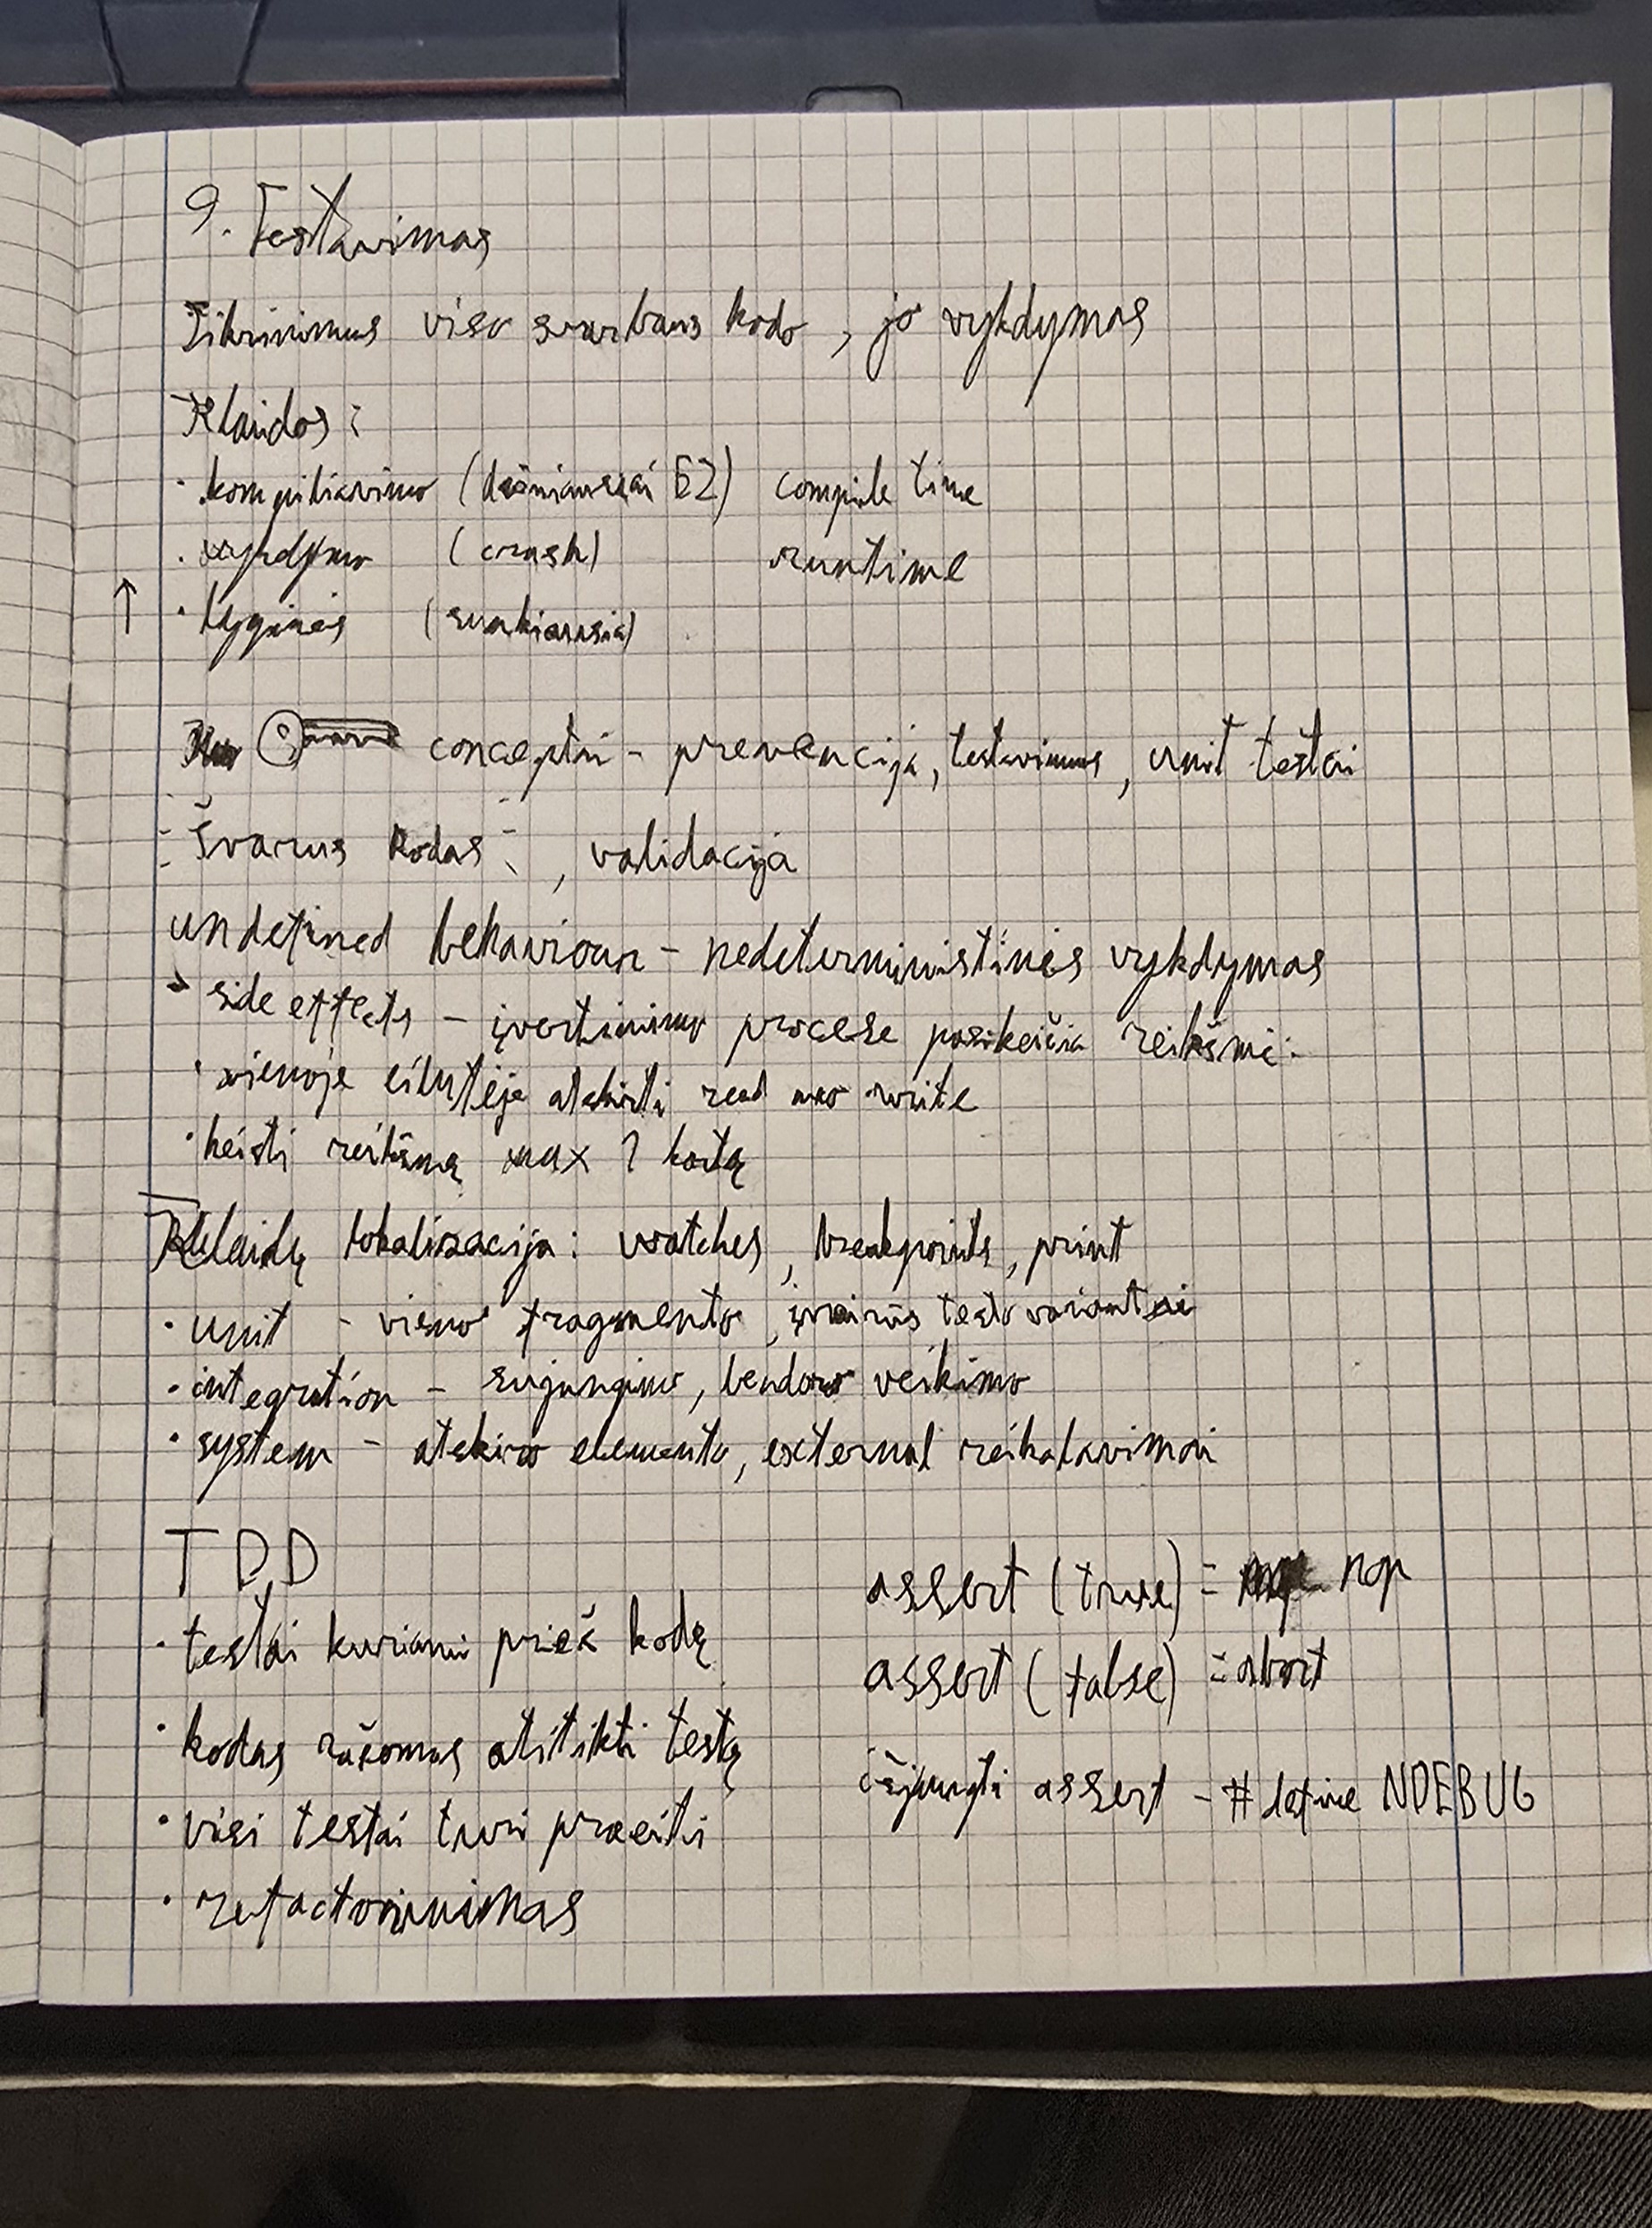 9. Testavimas
Tikrinimas viso svarbaus kodo, jo vykdymas
Klaidos:
· kompiliavimo (dažniausiai EZ) compile time
· vykdymo (crash) runtime
↑ · loginės (sunkiausia)
conceptai - prevencija, testavimas, unit testai
Švarus kodas, validacija
undefined behaviour - nedeterministinės vykdymas
→ side effects - įvertinimo procese pasikeičia reikšmė.
· vienoje eilutėje atskirti read nuo write
· keisti reikšmę max 1 kartą
Klaidų lokalizacija: watches, breakpoints, print
· unit - vieno fragmento, įvairūs testo variantai
· integration - sujungimo, bendro veikimo
· system - atskiro elemento, external reikalavimai
TDD
· testai kuriami prieš kodą
· kodas rašomas atitikti testą
· visi testai turi praeiti
· refactorinimas
assert (true) = nop
assert (false) = abort
išjungti assert - #define NDEBUG